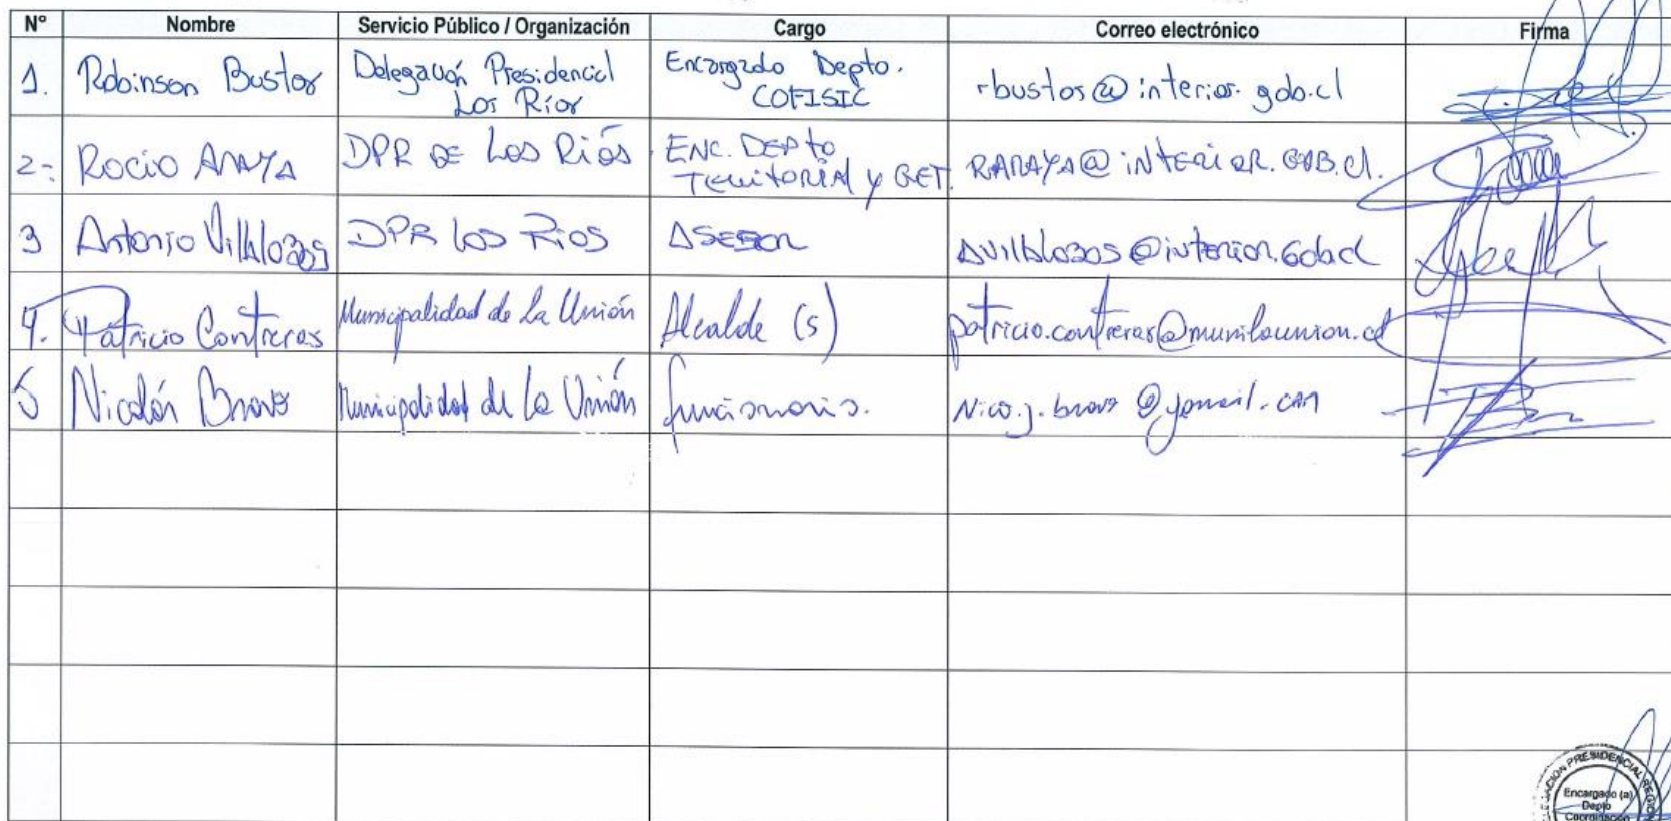 N° Nombre Servicio Público / Organización Cargo Correo electrónico Firma
1. Robinson Bustos Delegación Presidencial Los Ríos Encargado Depto. COFISIC rbustos@interior.gob.cl
2- Rocio ARAYA DPR DE Los Ríos ENC. DEPto Territorial y GET. RARAYA@interior.GOB.cl.
3 Antonio Villalobos DPR Los Rios ASESOR Avillalobos@interior.gob.cl
4. Patricio Contreras Municipalidad de La Unión Alcalde (s) patricio.contreras@munilaunion.cl
5 Nicolás Bravo Municipalidad de La Unión funcionario. Nico.j.bravo@gmail.com
PRESIDENCIAL
Encargado (a)
Depto
Coordinación